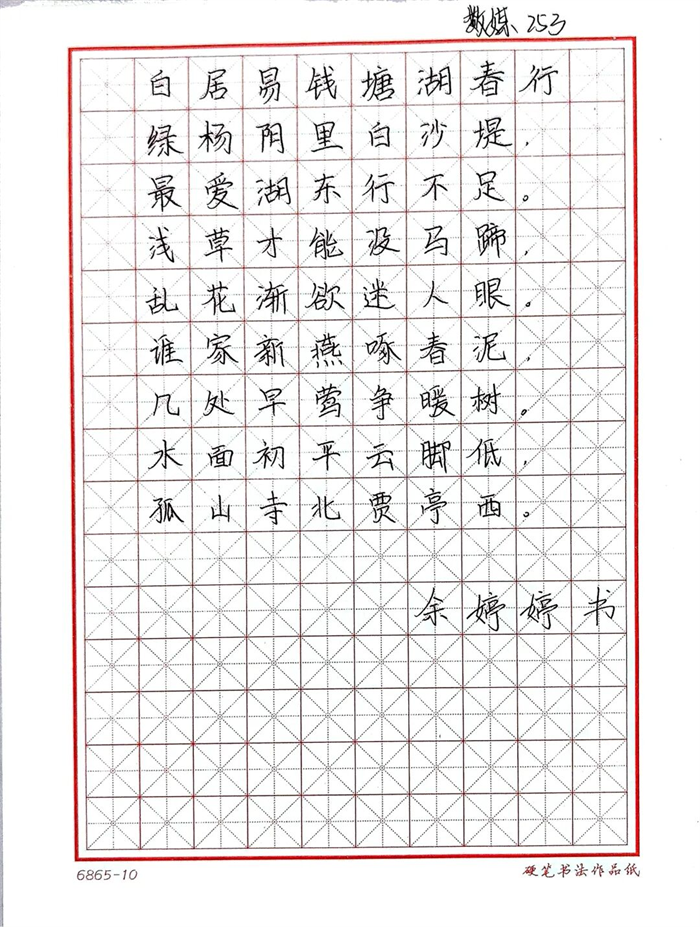 数媒253
白居易钱塘湖春行
绿杨阴里白沙堤,
最爱湖东行不足。
浅草才能没马蹄,
乱花渐欲迷人眼。
谁家新燕啄春泥,
几处早莺争暖树。
水面初平云脚低,
孤山寺北贾亭西。
余婷婷书
6865-10
硬笔书法作品纸